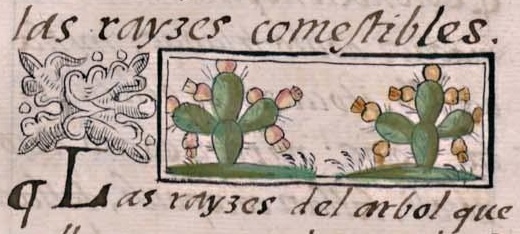 las rayzes comestibles.
¶ Las rayzes del arbol que